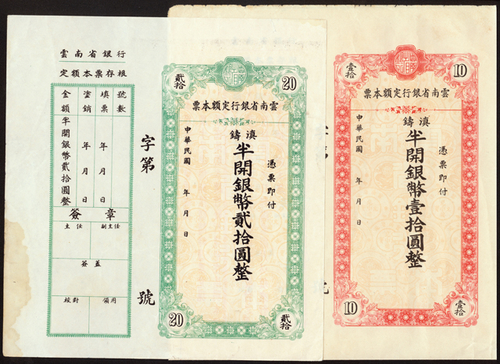 雲南省銀行
定額本票存根
號數
填票 年 月 日
塗銷 年 月 日
金額半開銀幣貳拾圓整
簽章
主任 副主任
簽蓋
核對 備用
字第 號
貳拾 20
雲南省銀行定額本票
憑票即付
滇鑄半開銀幣貳拾圓整
中華民國 年 月 日
20 貳拾
壹拾 10
雲南省銀行定額本票
憑票即付
滇鑄半開銀幣壹拾圓整
中華民國 年 月 日
10 壹拾